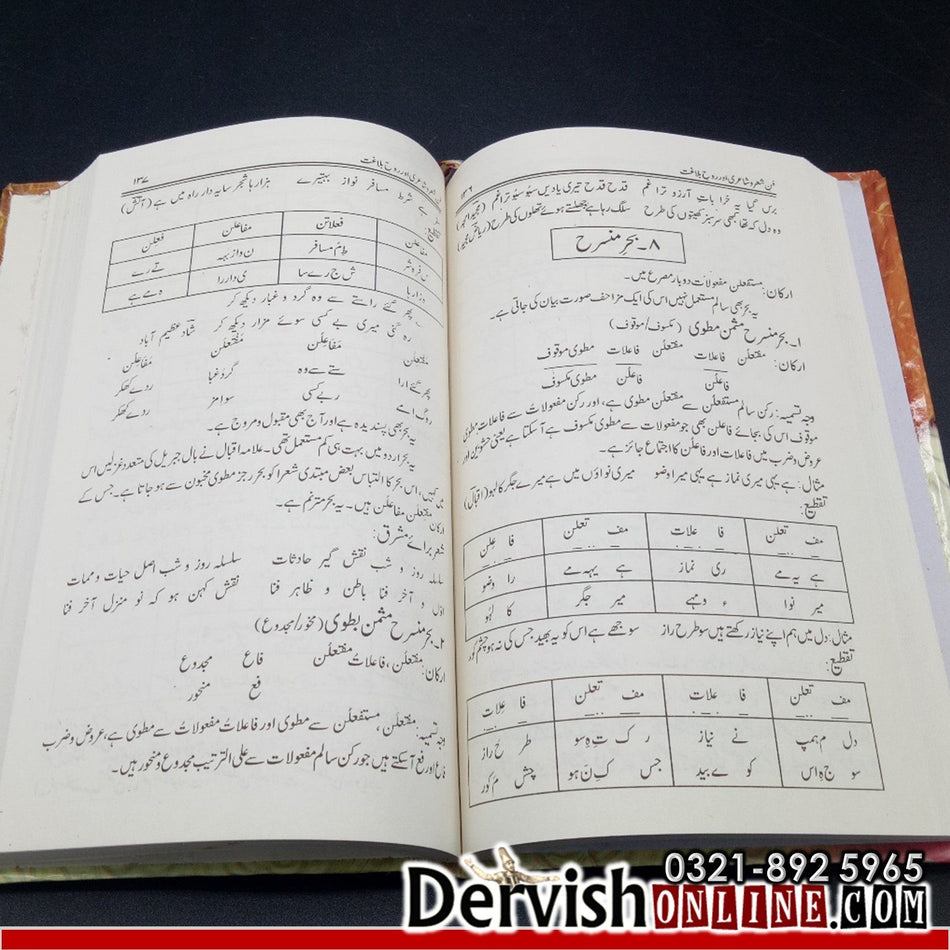 فن شعر و شاعری اور روح بلاغت
برس گیا بہ خراباتِ آرزو ترا غم قدح قدح تیری یادیں سبو سبو ترا غم
وہ دل کہ تھا کبھی سرسبز کھیتوں کی طرح سنگ رہا ہے جھلستے ہوئے تھلوں کی طرح
۸۔ بحر منسرح
ارکان: مستفعلن مفعولات دوبار مصرع میں۔
یہ بحر بھی سالم مستعمل نہیں اس کی ایک مزاحف صورت بیان کی جاتی ہے۔
۱۔ بحر منسرح مثمن مطوی (مکسوف/موقوف)
ارکان: مفتعلن فاعلات مفتعلن فاعلات مطوی موقوف
فاعلن فاعلن مطوی مکسوف
وجہ تسمیہ: رکن سالم مستفعلن سے مفتعلن مطوی ہے، اور رکن مفعولات سے فاعلات مطوی
موقوف اس کی بجائے فاعلن بھی جو مفعولات سے مطوی مکسوف ہے آ سکتا ہے یعنی حشوین اور
عروض و ضرب میں فاعلات اور فاعلن کا اجتماع جائز ہے۔
مثال: ہے یہی میری نماز ہے یہی میرا وضو میری نواؤں میں ہے میرے جگر کا لہو (اقبال)
تقطیع:
مف تعلن فا علات مف تعلن فا علن
ہے یہ مے ری نماز ہے یہہ مے را وضو
میر نوا ء و مہے میر جگر کا لہو
مثال: دل میں ہم اپنے نیاز رکھتے ہیں سو طرح راز سوجھے ہے اس کو یہ بھید جس کی نہ ہو چشم کور
تقطیع:
مف تعلن فا علات مف تعلن فا علات
دل م ہمپ نے نیاز رک ت ہ سو طرح راز
سو جہ ہ اس کو ے بید جس ک نَ ہو چش م کور
فن شعر و شاعری اور روح بلاغت ۱۳۷
ہے شرط مسافر نواز بہتیرے ہزارہا شجر سایہ دار راہ میں ہے (آتش)
مفاعلن فعلاتن مفاعلن فعلن
طِ مُ مسافر ن واز بہہ تے رے
ہ زار ہا ش ج رے سا ی دار را ہ مے ہے
پھر گئے راستے سے وہ گرد و غبار دیکھ کر
رہ گئی میری بے کسی سوئے مزار دیکھ کر شاد عظیم آباد
مفتعلن مفاعلن مفتعلن مفاعلن
پھر گئے را ستے سے وہ گرد غبا ردے کھکر
ر بے کسی سوا مز ردے کھکر
یہ بحر بھی پسندیدہ ہے اور آج بھی مقبول و مروج ہے۔
یہ بحر اردو میں بہت ہی کم مستعمل تھی۔ علامہ اقبال نے بال جبریل کی متعدد غزلیں اس
میں کہیں، اس بحر کا التباس بعض مبتدی شعرا کو بحر رجز مطوی مخبون سے ہو جاتا ہے۔ جس کے
ارکان مفتعلن مفاعلن ہیں۔ یہ بحر مترنم ہے۔
شعر برائے مشرق:
سلسلہ روز و شب نقش گیر حادثات سلسلہ روز و شب اصل حیات و ممات
اول و آخر فنا باطن و ظاہر فنا نقش کہن ہو کہ نو منزل آخر فنا
۲۔ بحر منسرح مثمن بطوی (منحور/مجدوع)
ارکان: مفتعلن، فاعلات مفتعلن فاع مجدوع
فع منحور
وجہ تسمیہ: مفتعلن، مستفعلن سے مطوی اور فاعلات مفعولات سے مطوی ہے، عروض و ضرب
فاع اور فع آ سکتے ہیں جو رکن سالم مفعولات سے علی الترتیب مجدوع و منحور ہیں۔
0321-892 5965
DervishONLINE.COM